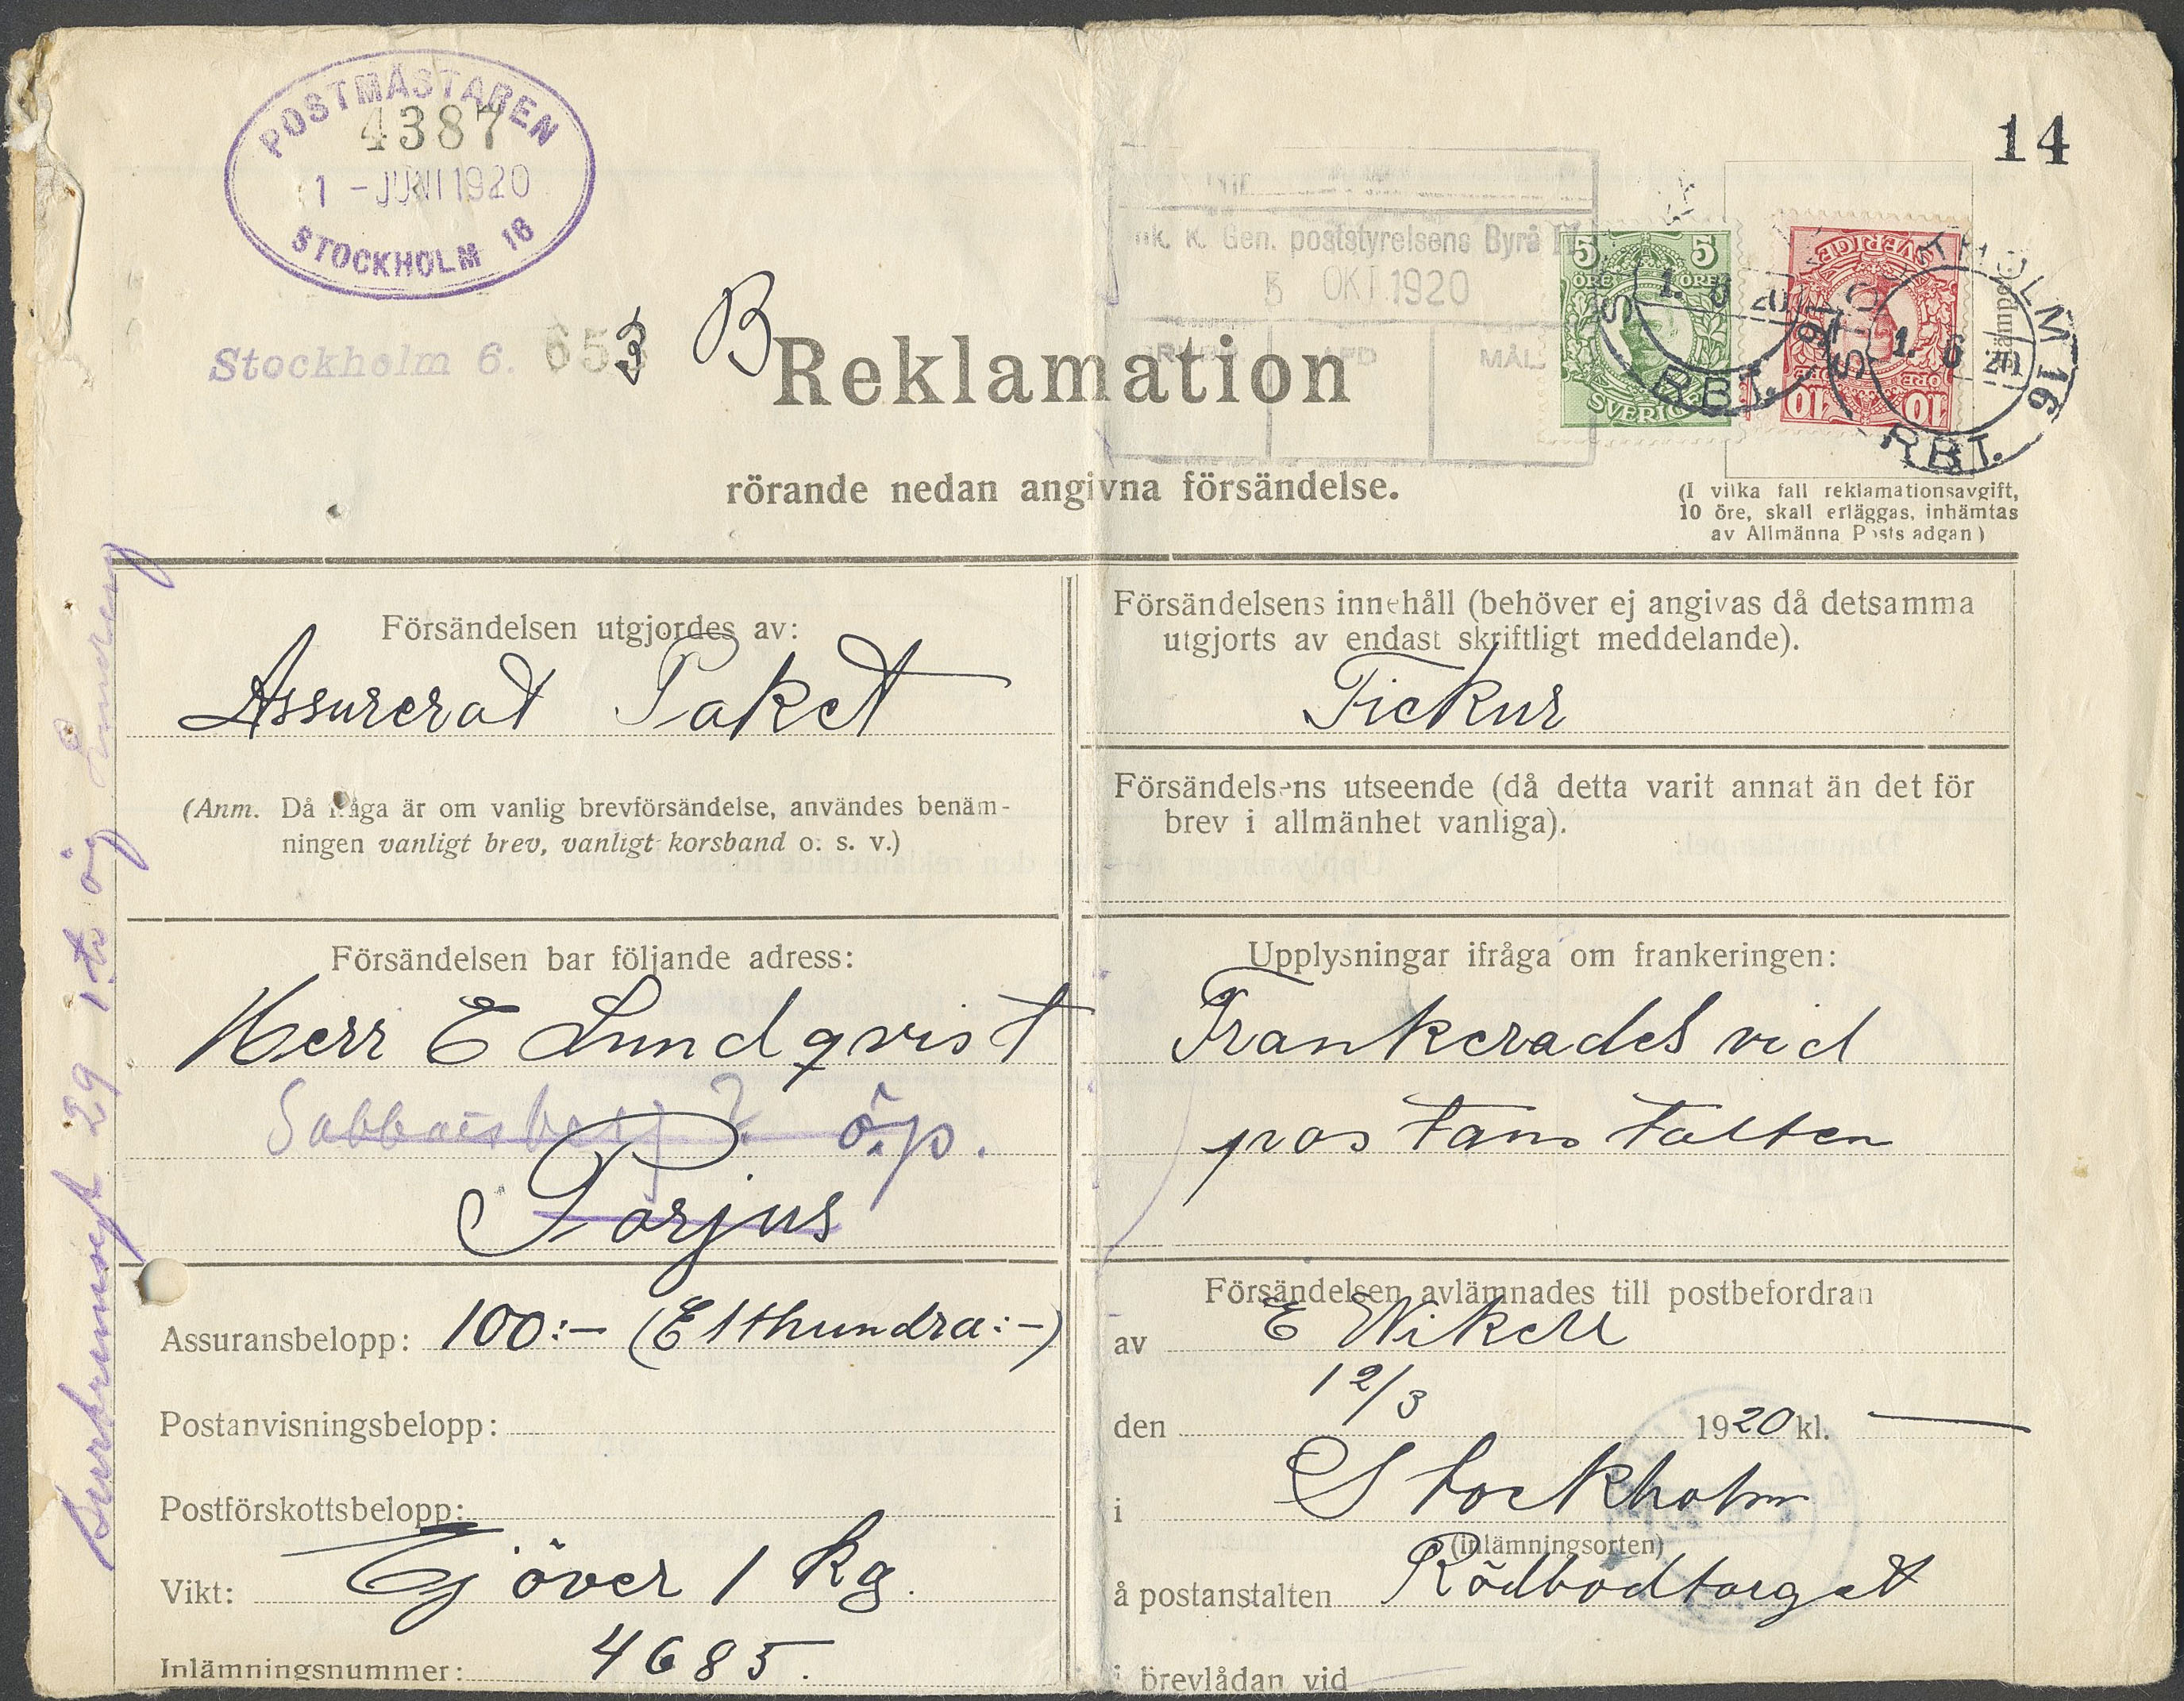 POSTMÄSTAREN
4387
1 - JUNI 1920
STOCKHOLM 16
14
K. Gen. poststyrelsens Byrå
5 OKT 1920
AFD
MÅL
5 5
ÖRE ÖRE
SVERIGE
SVERIGE
10 10
ÖRE
1. 6 20
RBT.
STOCKHOLM 16
1. 6 20
RBT.
Stockholm 6. 653
B
Reklamation
rörande nedan angivna försändelse.
(I vilka fall reklamationsavgift,
10 öre, skall erläggas, inhämtas
av Allmänna Poststadgan)
Försändelsen utgjordes av:
Assurerat Paket
(Anm. Då fråga är om vanlig brevförsändelse, användes benäm-
ningen vanligt brev, vanligt korsband o. s. v.)
Försändelsen bar följande adress:
Herr E Lundqvist
Sabbatsberg ö.p.
Porjus
Assuransbelopp: 100:- (Etthundra:-)
Postanvisningsbelopp:
Postförskottsbelopp:
Vikt: Ej över 1 kg.
Inlämningsnummer: 4685.
Försändelsens innehåll (behöver ej angivas då detsamma
utgjorts av endast skriftligt meddelande).
Fickur
Försändelsens utseende (då detta varit annat än det för
brev i allmänhet vanliga).
Upplysningar ifråga om frankeringen:
Frankerades vid
postanstalten
Försändelsen avlämnades till postbefordran
av E Wikell
den 12/3 1920 kl. —
i Stockholm
(inlämningsorten)
å postanstalten Rödbodtorget
i brevlådan vid